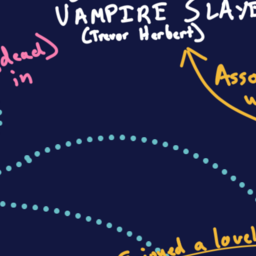 VAMPIRE SLAYE
(Trevor Herbert)
dead)
in
Asso
a lovel